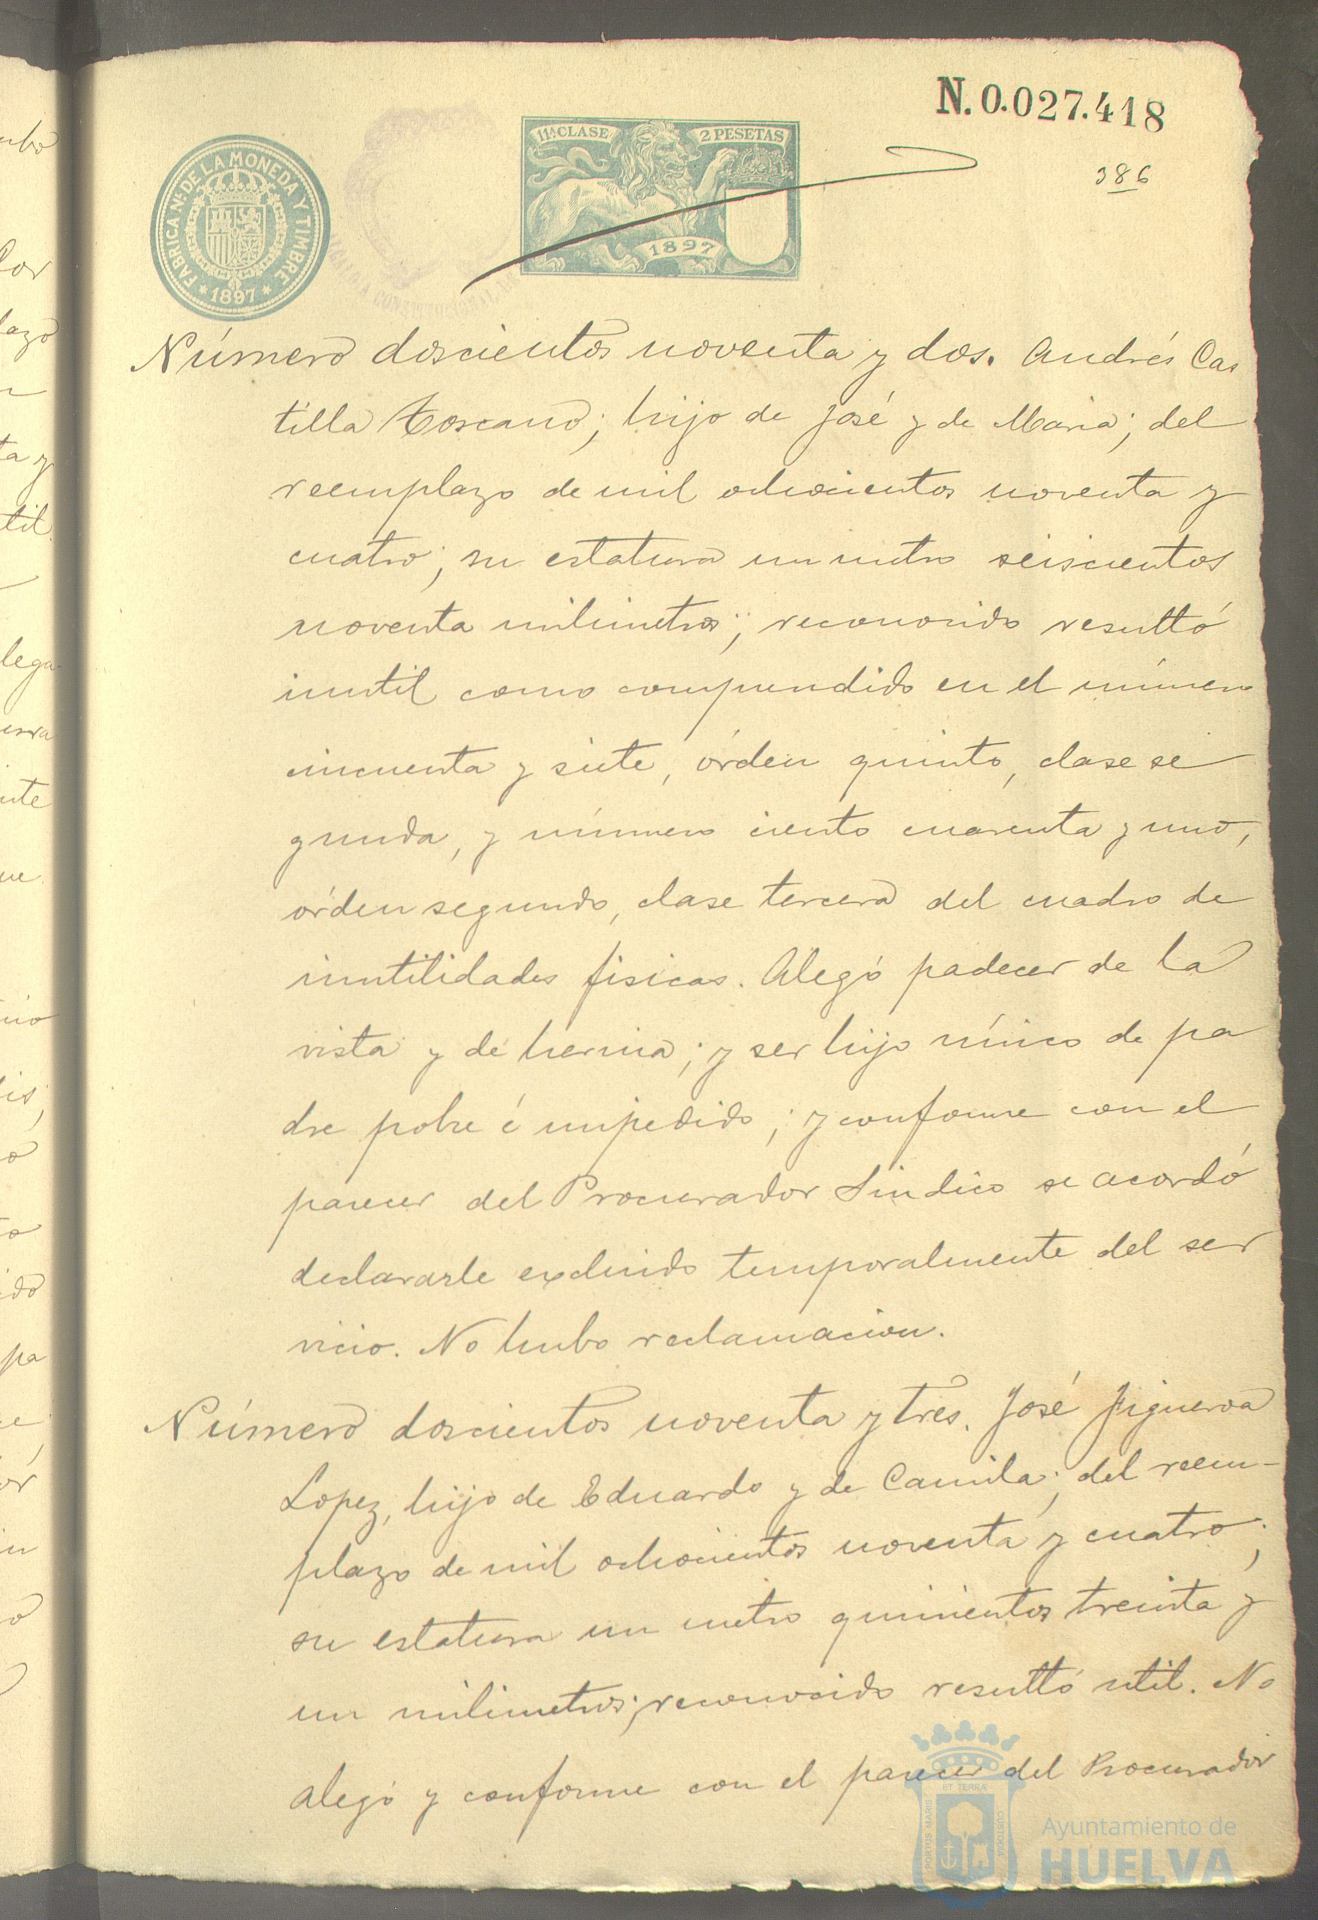 N. 0.027.418
386
FÁBRICA Nl. DE LA MONEDA Y TIMBRE
* 1897 *
11ª CLASE
2 PESETAS
1897
CONSTITUCIONAL
Número doscientos noventa y dos. Andrés Cas
tilla Toscano; hijo de José y de Maria; del
reemplazo de mil ochocientos noventa y
cuatro; su estatura un metro seiscientos
noventa milimetros; reconocido resultó
inutil como comprendido en el número
cincuenta y siete, órden quinto, clase se
gunda, y número ciento cuarenta y uno,
órden segundo, clase tercera del cuadro de
inutilidades fisicas. Alegó padecer de la
vista y de hernia; y ser hijo único de pa
dre pobre é impedido; y conforme con el
parecer del Procurador Sindico se acordó
declararle excluido temporalmente del ser
vicio. No hubo reclamacion.
Número doscientos noventa y tres. José Figueroa
Lopez, hijo de Eduardo y de Camila; del reem-
plazo de mil ochocientos noventa y cuatro;
su estatura un metro quinientos treinta y
un milimetros; reconocido resultó util. No
alegó y conforme con el parecer del Procurador
ET TERRA
PORTUS MARIS
CUSTODIA
Ayuntamiento de
HUELVA